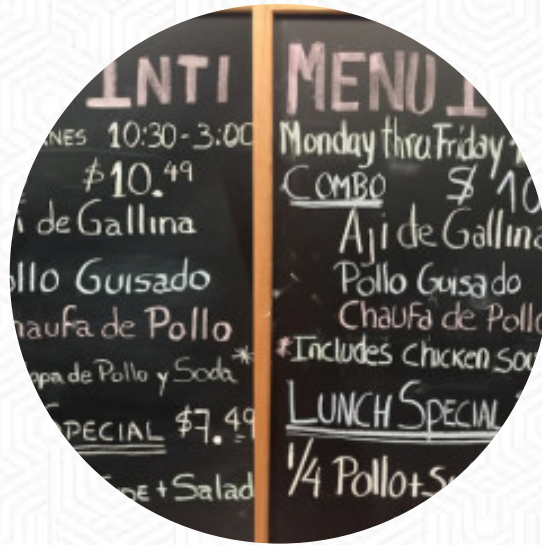 INTI
10:30-3:00
$10.49
de Gallina
Guisado
de Pollo
de Pollo y Soda*
$7.49
+ Salad
MENU
Monday thru Friday
COMBO $ 10
Aji de Gallina
Pollo Guisado
Chaufa de Pollo
*Includes chicken
LUNCH SPECIAL
1/4 Pollo+